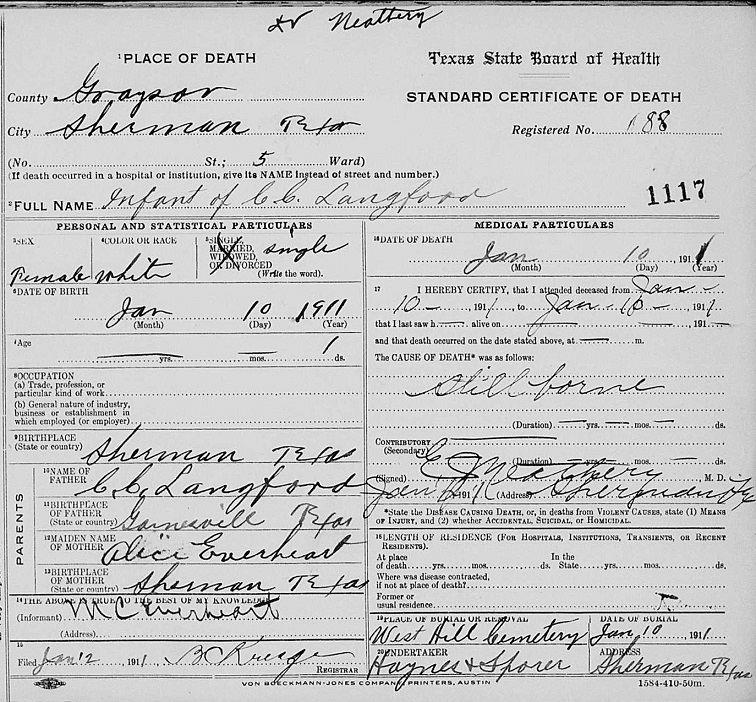 Dr Neathery
1 PLACE OF DEATH
County Grayson
City Sherman Texas
(No. St.; 5 Ward)
(If death occurred in a hospital or institution, give its NAME instead of street and number.)
2 FULL NAME Infant of C. C. Langford
Texas State Board of Health
STANDARD CERTIFICATE OF DEATH
Registered No. 88
1117
PERSONAL AND STATISTICAL PARTICULARS
3 SEX
Female
4 COLOR OR RACE
white
5 SINGLE, MARRIED, WIDOWED, OR DIVORCED
single
(Write the word).
6 DATE OF BIRTH
Jan 10 1911
(Month) (Day) (Year)
7 Age
yrs. mos. 1 ds.
8 OCCUPATION
(a) Trade, profession, or
particular kind of work
(b) General nature of industry,
business or establishment in
which employed (or employer)
9 BIRTHPLACE
(State or country) Sherman Texas
PARENTS
10 NAME OF
FATHER C. C. Langford
11 BIRTHPLACE
OF FATHER
(State or country) Gainesvill Texas
12 MAIDEN NAME
OF MOTHER Alice Everheart
13 BIRTHPLACE
OF MOTHER
(State or country) Sherman Texas
14 THE ABOVE IS TRUE TO THE BEST OF MY KNOWLEDGE
(Informant) M C Everheart
(Address)
15
Filed Jan 12 1911 REGISTRAR
MEDICAL PARTICULARS
16 DATE OF DEATH
Jan 10 1911
(Month) (Day) (Year)
17 I HEREBY CERTIFY, that I attended deceased from Jan
10 1911, to Jan 10 1911
that I last saw h alive on 191
and that death occurred on the date stated above, at m.
The CAUSE OF DEATH* was as follows:
Still borne
(Duration) yrs. mos. ds.
CONTRIBUTORY
(Secondary)
(Duration) yrs. mos. ds.
(Signed) E J Neathery M. D.
Jan 1911 (Address) Sherman Tex
*State the DISEASE CAUSING DEATH, or, in deaths from VIOLENT CAUSES, state (1) MEANS
OF INJURY, and (2) whether ACCIDENTAL, SUICIDAL, OR HOMICIDAL.
18 LENGTH OF RESIDENCE (FOR HOSPITALS, INSTITUTIONS, TRANSIENTS, OR RECENT
RESIDENTS).
At place In the
of death yrs. mos. ds. State yrs. mos. ds.
Where was disease contracted,
if not at place of death?
Former or
usual residence
19 PLACE OF BURIAL OR REMOVAL
West Hill Cemetery
DATE OF BURIAL
Jan 10 1911
20 UNDERTAKER
Haynes & Sporer
ADDRESS
Sherman Texas
VON BOECKMANN-JONES COMPANY, PRINTERS, AUSTIN
1584-410-50m.